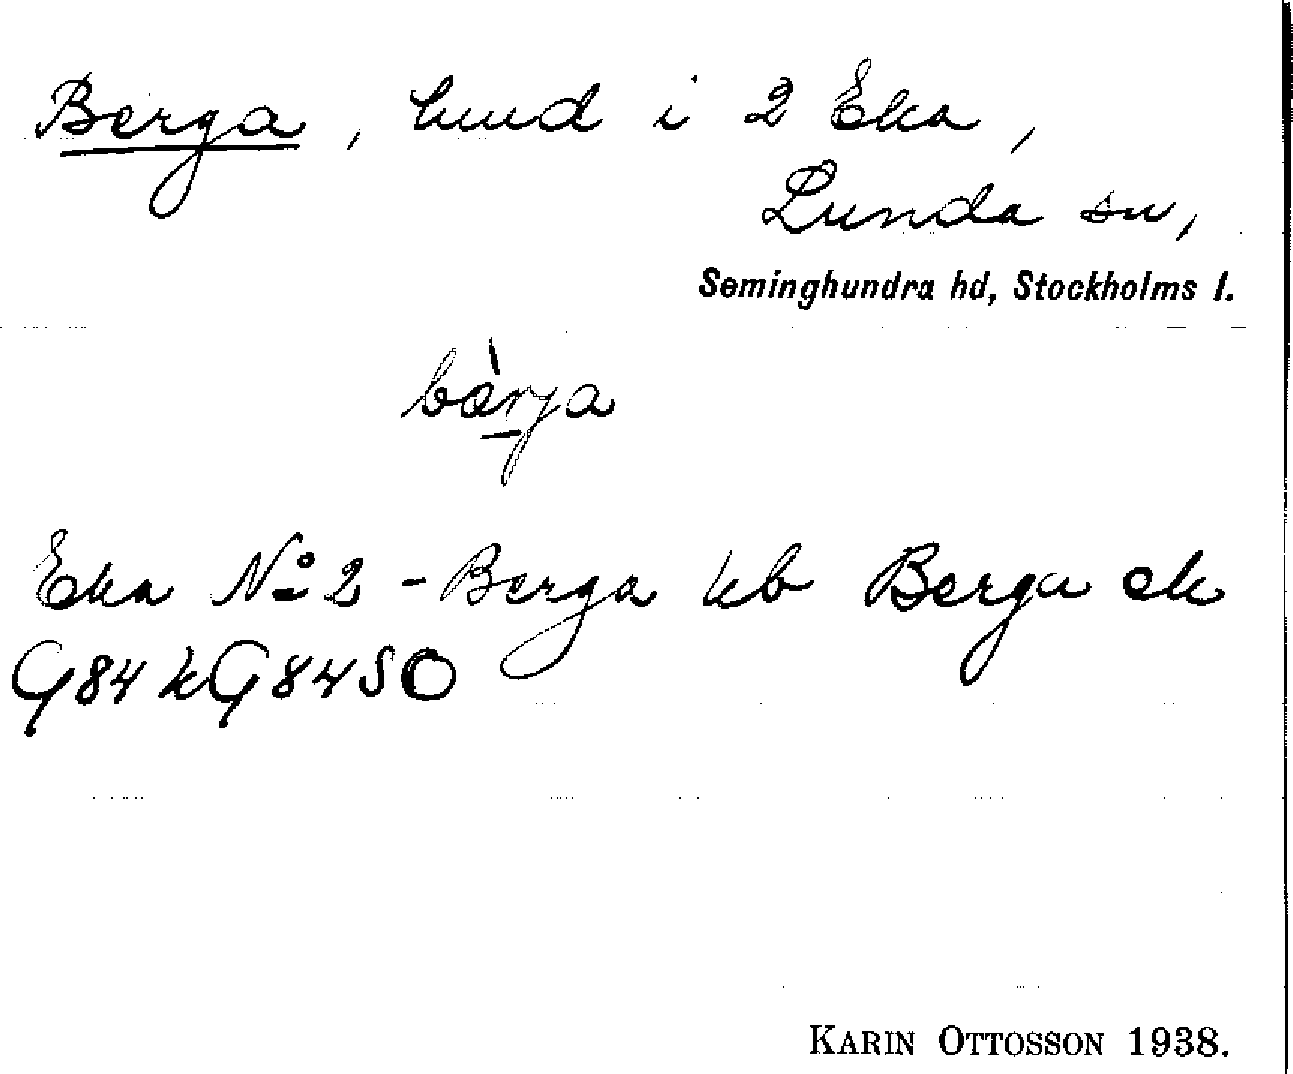 Berga, hmd i 2 Eka,
Lunda sn,
Seminghundra hd, Stockholms l.
bàrja
Eka No 2 - Berga kb Berga ek
G84 k G84 SO
KARIN OTTOSSON 1938.